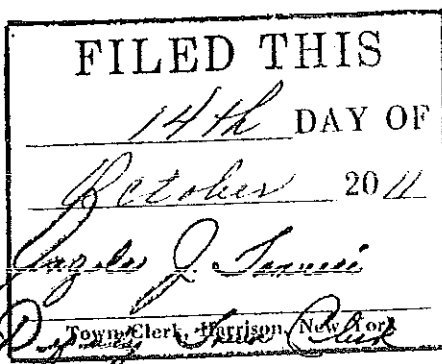 FILED THIS
14th DAY OF
October 2011
Angela J.
Town Clerk, Harrison, New York
Deputy Town Clerk